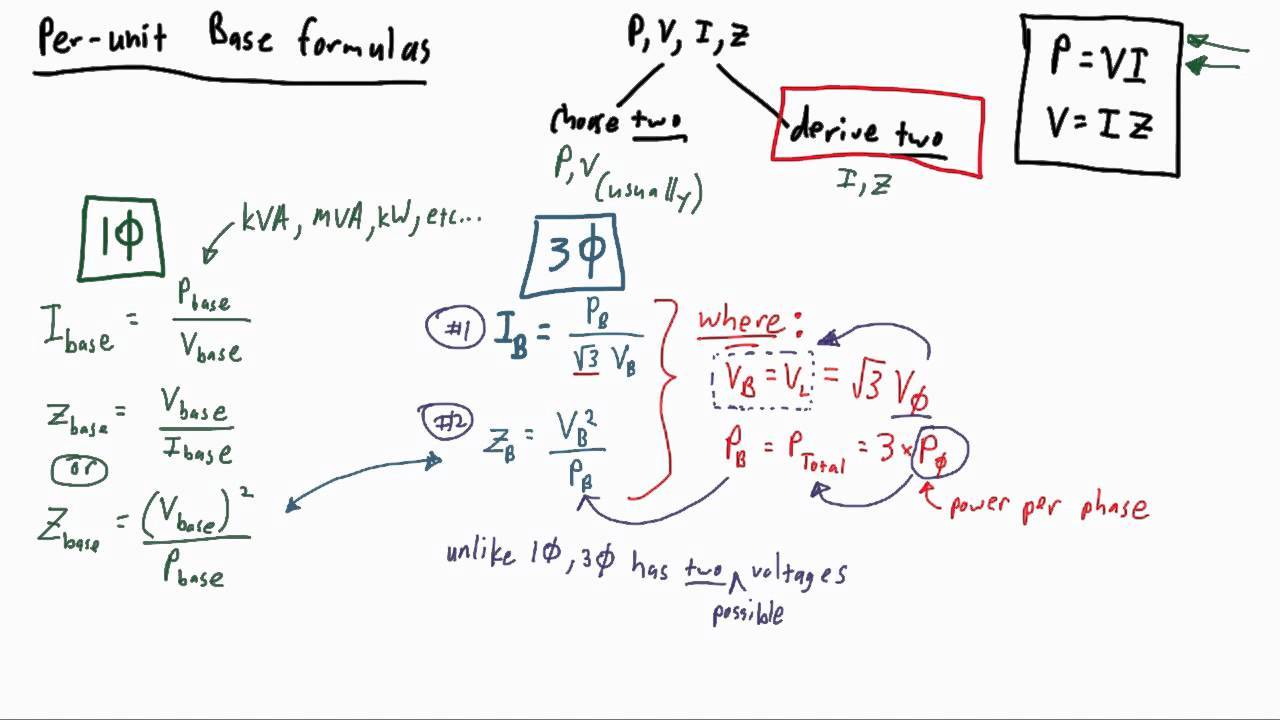 Per-unit Base formulas
P, V, I, Z
choose two
derive two
P, V (usually)
I, Z
P = VI
V = I Z
1ϕ
kVA, MVA, kW, etc...
I_base = P_base / V_base
Z_base = V_base / I_base
or
Z_base = (V_base)² / P_base
3ϕ
#1 I_B = P_B / √3 V_B
#2 Z_B = V_B² / P_B
where:
V_B = V_L = √3 V_ϕ
P_B = P_Total = 3 × P_ϕ
power per phase
unlike 1ϕ, 3ϕ has two ^ voltages
possible